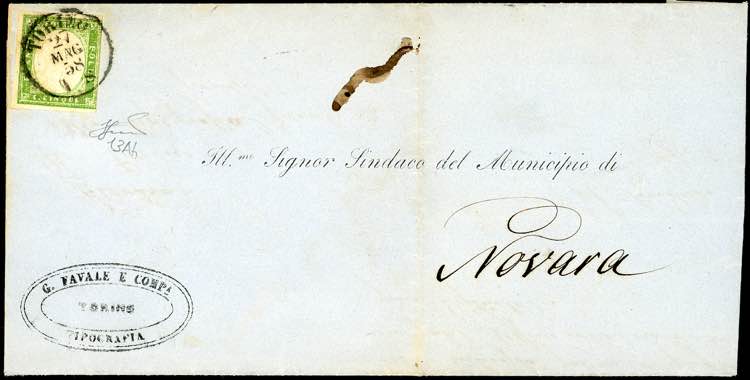 TORINO
27
MAG
58
FRANCO BOLLO
C. CINQUE
13Ab
Ill.mo Signor Sindaco del Municipio di
Novara
G. FAVALE E COMPA
TORINO
TIPOGRAFIA